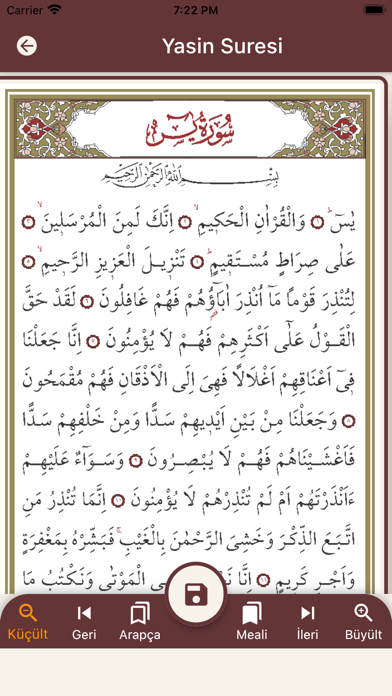 Carrier 7:22 PM
Yasin Suresi
سُورَةُ يٰسٓ
بِسْمِ اللّٰهِ الرَّحْمٰنِ الرَّحٖيمِ
يٰسٓ ۚ ﴿١﴾ وَالْقُرْاٰنِ الْحَكٖيمِۙ ﴿٢﴾ اِنَّكَ لَمِنَ الْمُرْسَلٖينَۙ ﴿٣﴾
عَلٰى صِرَاطٍ مُسْتَقٖيمٍؕ ﴿٤﴾ تَنْزٖيلَ الْعَزٖيزِ الرَّحٖيمِۙ ﴿٥﴾
لِتُنْذِرَ قَوْمًا مَٓا اُنْذِرَ اٰبَٓاؤُ۬هُمْ فَهُمْ غَافِلُونَ ﴿٦﴾ لَقَدْ حَقَّ
الْقَوْلُ عَلٰٓى اَكْثَرِهِمْ فَهُمْ لَا يُؤْمِنُونَ ﴿٧﴾ اِنَّا جَعَلْنَا
فٖٓى اَعْنَاقِهِمْ اَغْلَالًا فَهِىَ اِلَى الْاَذْقَانِ فَهُمْ مُقْمَحُونَ
﴿٨﴾ وَجَعَلْنَا مِنْ بَيْنِ اَيْدٖيهِمْ سَدًّا وَمِنْ خَلْفِهِمْ سَدًّا
فَاَغْشَيْنَاهُمْ فَهُمْ لَا يُبْصِرُونَ ﴿٩﴾ وَسَوَٓاءٌ عَلَيْهِمْ
ءَاَنْذَرْتَهُمْ اَمْ لَمْ تُنْذِرْهُمْ لَا يُؤْمِنُونَ ﴿١٠﴾ اِنَّمَا تُنْذِرُ مَنِ
اتَّبَعَ الذِّكْرَ وَخَشِىَ الرَّحْمٰنَ بِالْغَيْبِۚ فَبَشِّرْهُ بِمَغْفِرَةٍ
وَاَجْرٍ كَرٖيمٍ ﴿١١﴾ اِنَّا الْمَوْتٰى وَنَكْتُبُ مَا
Küçült Geri Arapça Meali İleri Büyült